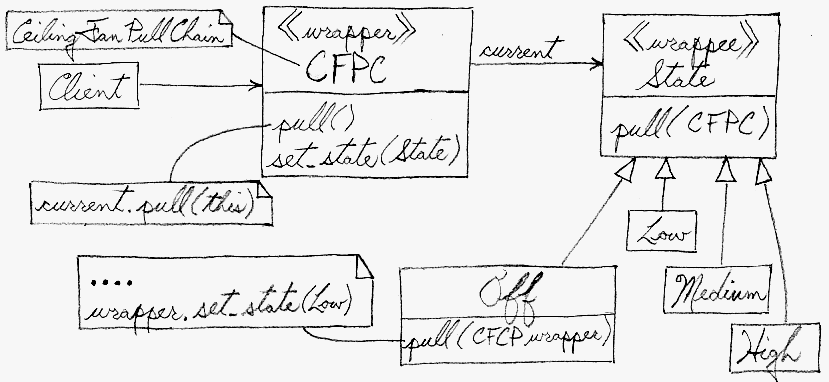 Ceiling Fan Pull Chain
Client
《wrapper》
CFPC
pull()
set_state(State)
current
《wrappee》
State
pull(CFPC)
current.pull(this)
....
wrapper.set_state(Low)
Off
pull(CFCP wrapper)
Low
Medium
High